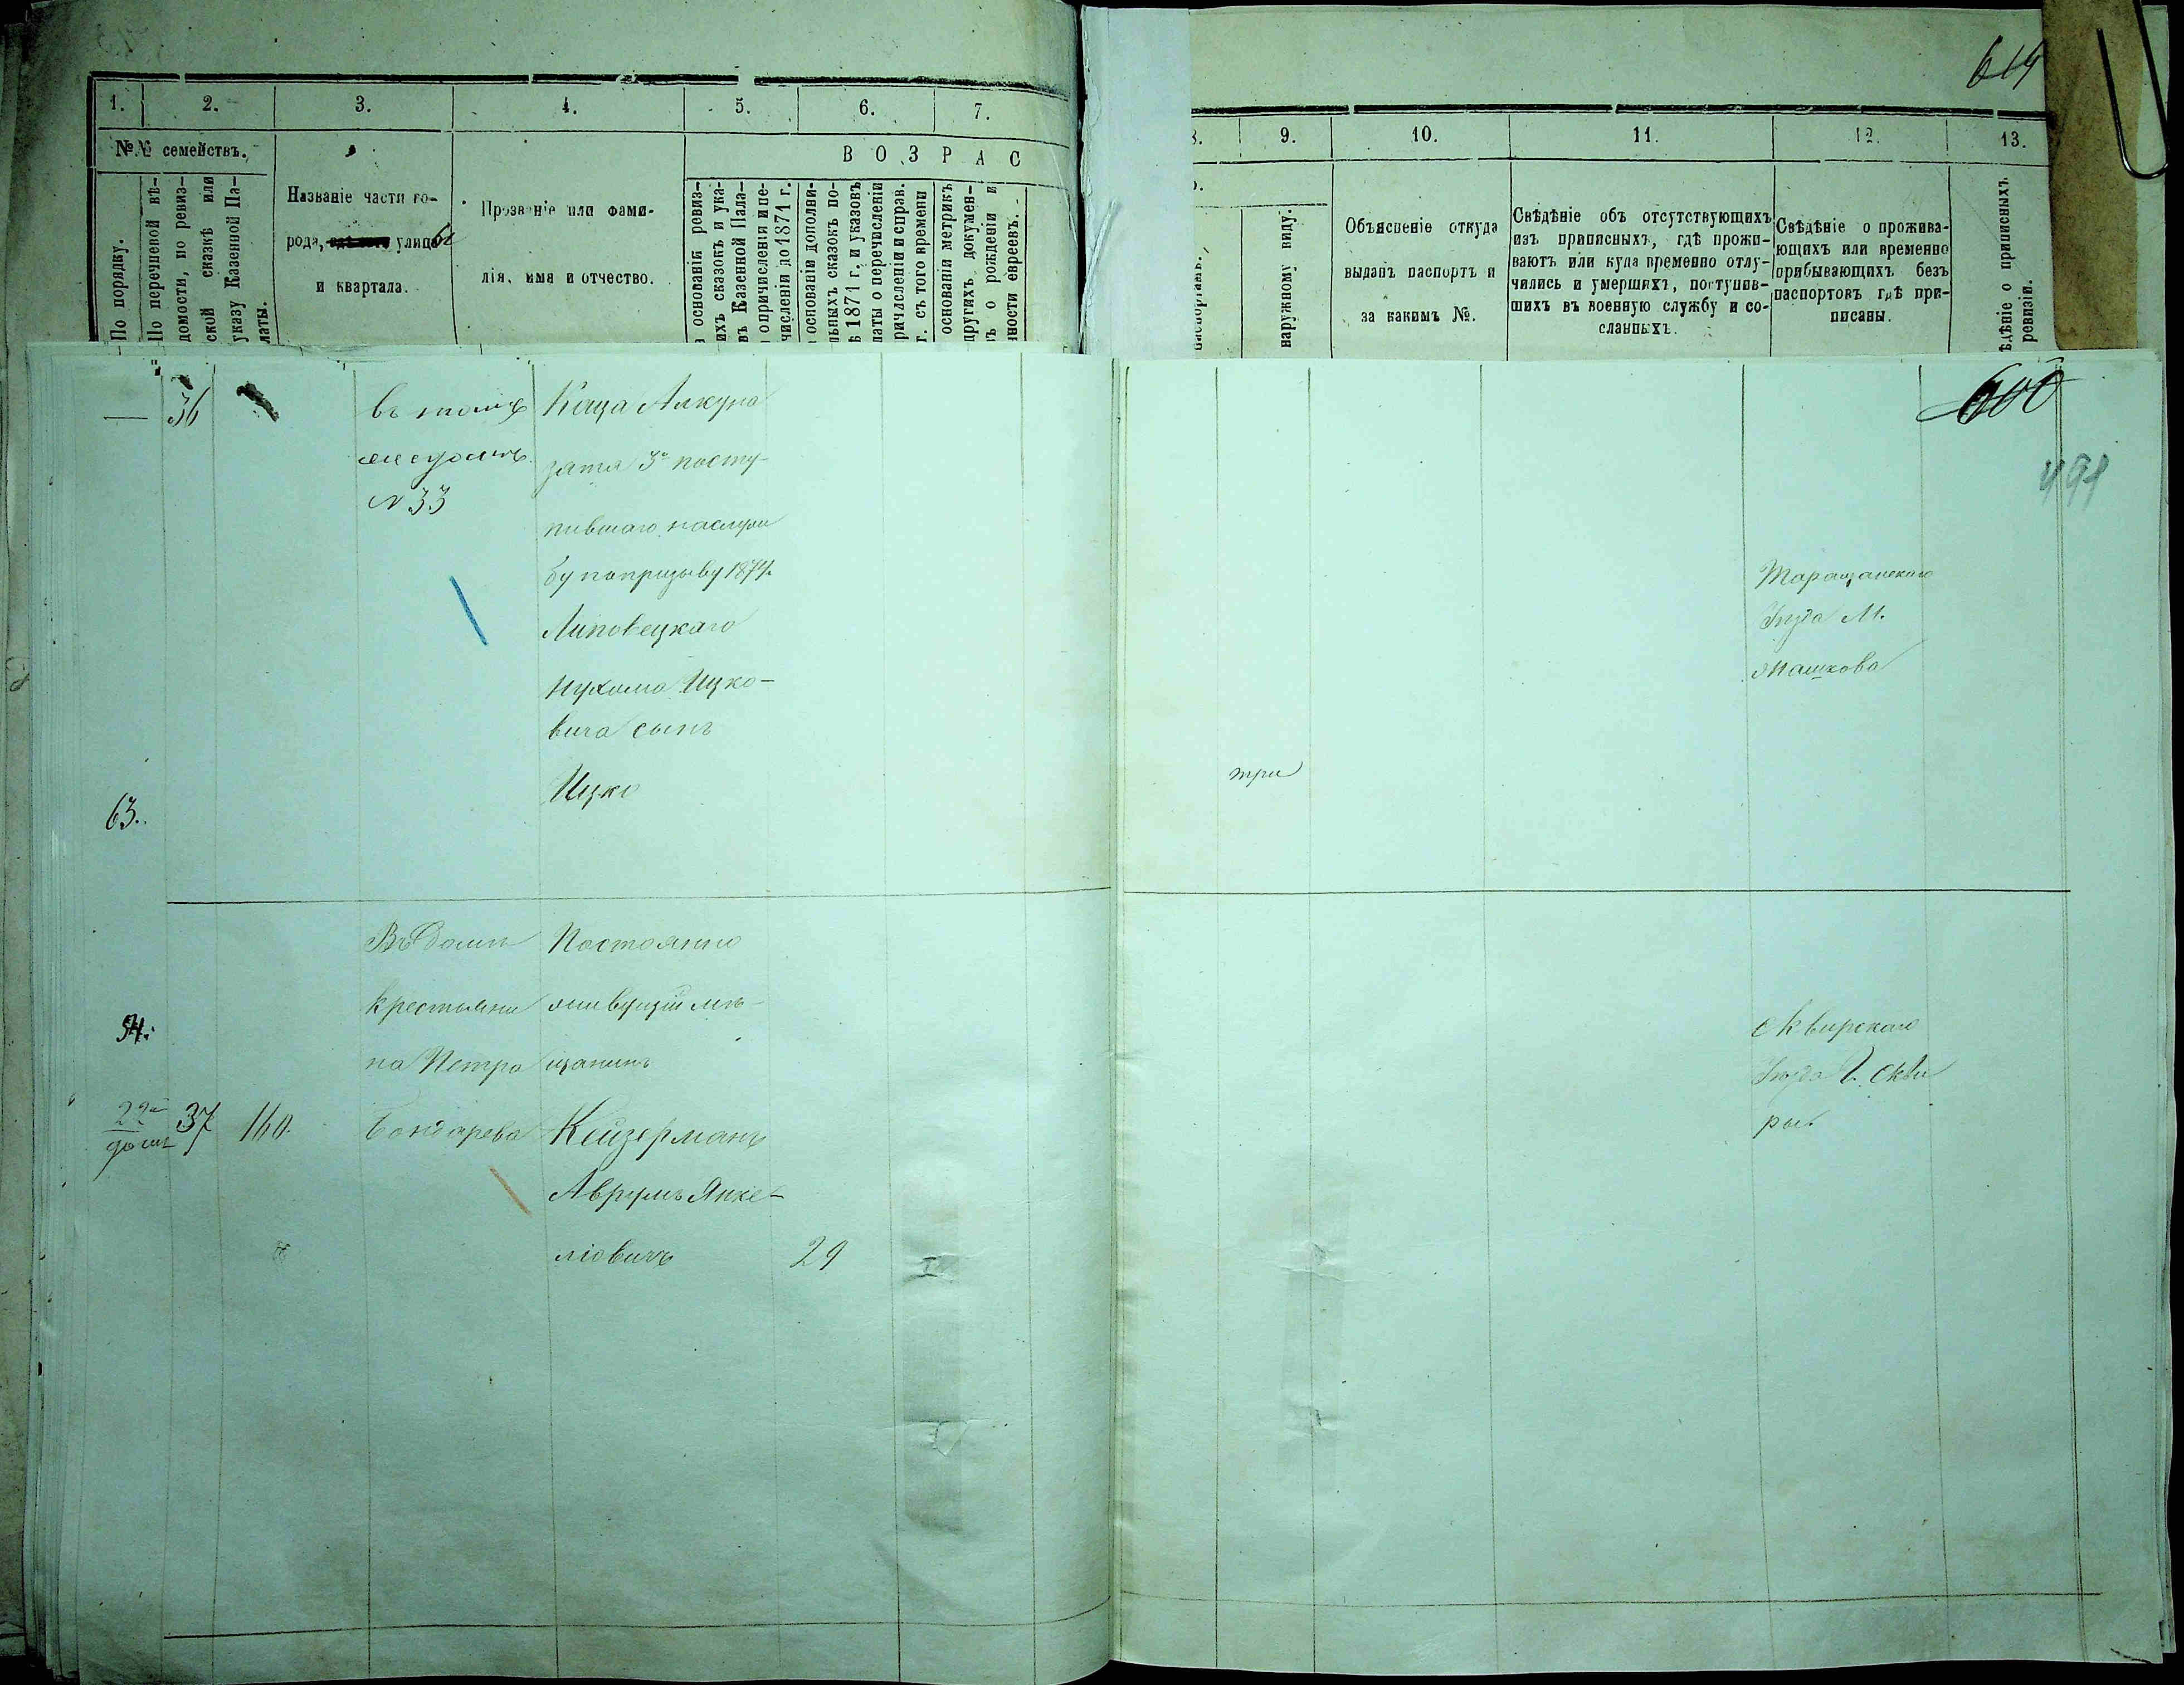 614
1. 2. 3. 4. 5. 6. 7.
№№ семействъ.
ВОЗРАС
По порядку.
По перечневой вѣ-
домости, по ревиз-
ской сказкѣ или
указу Казенной Па-
латы.
Названіе части го-
рода, улицы
и квартала.
Прозваніе или фами-
лія, имя и отчество.
основанія ревиз-
ихъ сказокъ и ука-
въ Казенной Пала-
о причисленіи и пе-
численіи до 1871 г.
основаніи дополни-
льныхъ сказокъ по-
ѣ 1871 г. и указовъ
латы о перечисленіи
ричисленіи и справ.
г. съ того времени
основаніи метрикъ
другихъ докумен-
ъ о рожденіи и
ности евреевъ.
8. 9. 10. 11. 12. 13.
наружному виду.
Объясненіе откуда
выданъ паспортъ и
за какимъ №.
Свѣдѣніе объ отсутствующихъ
изъ приписныхъ, гдѣ прожи-
ваютъ или куда временно отлу-
чились и умершихъ, поступив-
шихъ въ военную службу и со-
сланныхъ.
Свѣдѣніе о прожива-
ющихъ или временно
прибывающихъ безъ
паспортовъ гдѣ при-
писаны.
ѣдѣніе о приписныхъ
ревизіи.
600
491
— 36
въ томъ
же домѣ
№ 33
Каца
зятя 3º посту-
пившаго на служ
бу по призыву 1874.
Липовецкаго
Нухима Ицко-
вича сынъ
Ицко
63.
три
Таращанскаго
уѣзда М.
Жашкова
Въ домѣ
крестьяни
на Петра
Бондарева
Постоянно
живущій мѣ-
щанинъ
Кейзерманъ
Аврумъ Янке-
лiовичъ 29
54.
22й
домъ
37 160.
Сквирскаго
уѣзда Г. Скви
ры.